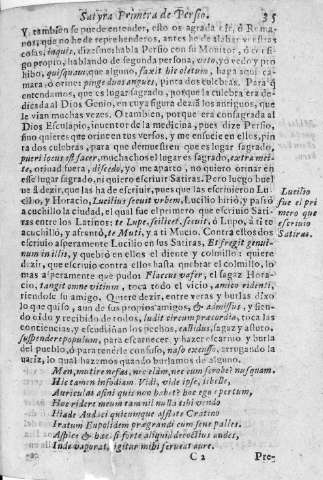 Satyra Primera de Persio. 35
Y tambien se puede entender, esto os agrada esso, ô Roma-
nos, que no he de reprehenderos, antes he de alabar vuestras
cosas, inquis, dizes, nos habla Persio con su Monitor, ô consi-
go propio, hablando de segunda persona, veto, yo vedo y pro
hibo, quisquam, que alguno, faxit hic oletum, haga aqui ca-
mara, ô orines: pinge duos angues, pinta dos culebras. Para q̃
entendamos, que es lugar sagrado, porque la culebra era de-
dicada al Dios Genio, en cuya figura dezia los antiguos, que
le vian muchas vezes. O tambien, porque era consagrada al
Dios Esculapio, inuentor de la medicina, pues dize Persio,
sino quieres que orine en tus versos, y me ensucie en ellos, pin
ta dos culebras, para que demuestren que es lugar sagrado,
pueri locus est sacer, muchachos el lugar es sagrado, extra mei-
te, orinad fuera, discedo, yo me aparto, no quiero orinar en
esse lugar sagrado, ni quiero escriuir Satiras. Pero luego buel
ue â dezir, que las ha de escriuir, pues que las escriuieron Luci
lio, y Horacio, Lucilius secuit vrbem, Lucilio hirió, y passó
a cuchillo la ciudad, el qual fue el primero que escriuió Sati-
ras entre los Latinos: te Lupe, scilicet, secuit, ô Lupo, â ti te
acuchilló, y afrentò, te Muti, y a ti Mucio. Contra estos dos
escriuio asperamente Lucilio en sus Satiras, Et fregit genui-
num in illis, y quebró en ellos el diente y colmillo: quiere
dezir, que escriuio contra ellos hasta quebrar el colmillo, lo
mas asperamente que pudo: Flaccus vafer, el sagaz Hora-
cio, tangit omne vitium, toca todo el vicio, amico ridenti,
riendose su amigo. Quiere dezir, entre veras y burlas dixo
lo que quiso, aun de sus propios amigos, & admissus, y sien-
do oido y recibido de todos, ludit circum præcordia, toca las
conciencias, y escudriñan los pechos, callidus, sagaz y astuto,
suspendere populum, para escarnecer, y hazer escarnio y burla
del pueblo, ô para tenerle confuso, naso excusso, arrugando la
nariz, lo qual hazemos quando burlamos de alguno.
Men, mutire nefas, nec clàm, nec cum scrobe? nusquam.
Hic tamen infodiam. Vidi, vide ipse, libelle,
Auriculas asini quis non habet? hoc ego opertum,
Hoc ridere meum tam nil nulla tibi vendo
Iliade. Audaci quicumque afflate Cratino
Iratum Eupolidem prægrandi cum sene palles.
Aspice & hæc, si forte aliquid decoctius audes,
Inde vaporata lector mihi ferueat aure.
C 2 Pre-
Lucilio
fue el pri
mero que
escriuio
Satiras.